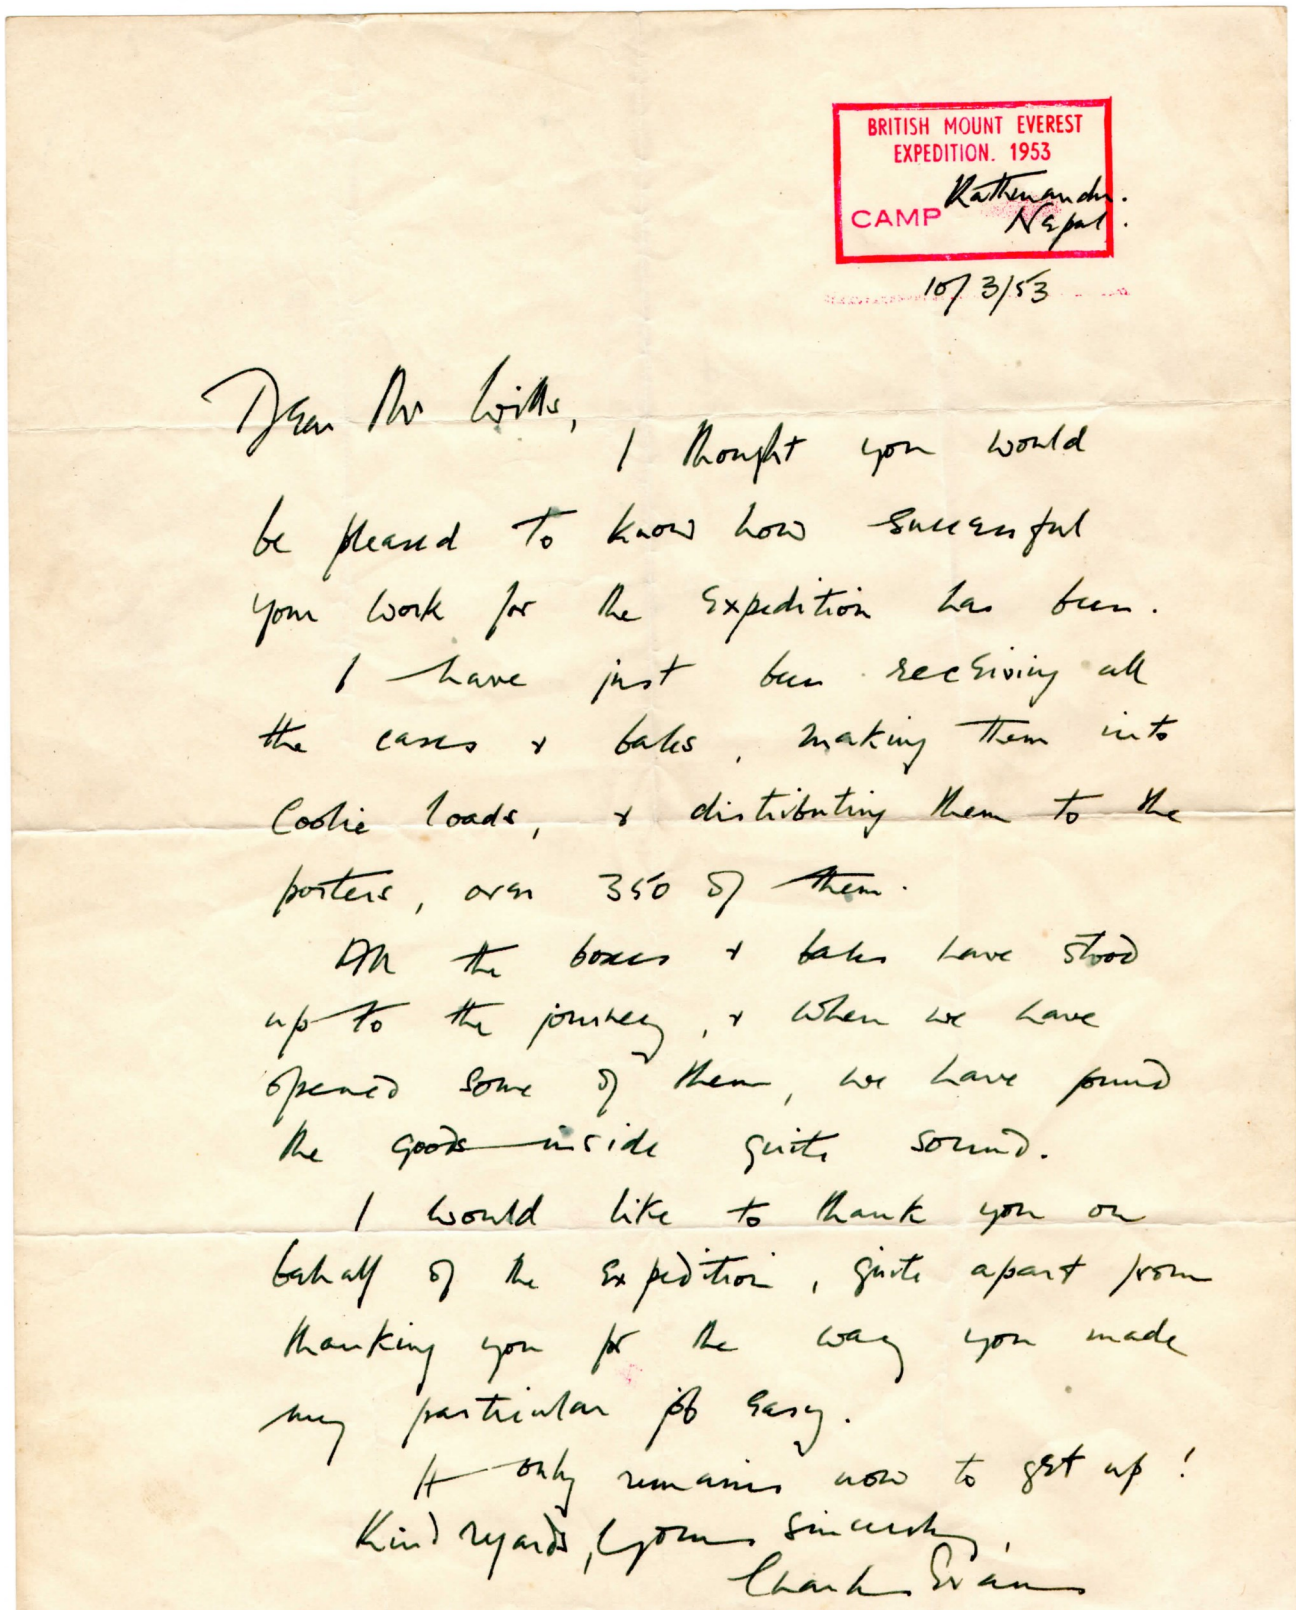 BRITISH MOUNT EVEREST
EXPEDITION. 1953
Kathmandu.
CAMP
Nepal.
10/3/53
Dear Mr Wills,
I thought you would
be pleased to know how successful
your work for the Expedition has been.
I have just been receiving all
the cases & bales, making them into
Coolie loads, & distributing them to the
porters, over 350 of them.
All the boxes & bales have stood
up to the journey, & when we have
opened some of them, we have found
the goods inside quite sound.
I would like to thank you on
behalf of the Expedition, quite apart from
thanking you for the way you made
my particular job easy.
It only remains now to get up!
Kind regards, Yours sincerely,
Charles Evans